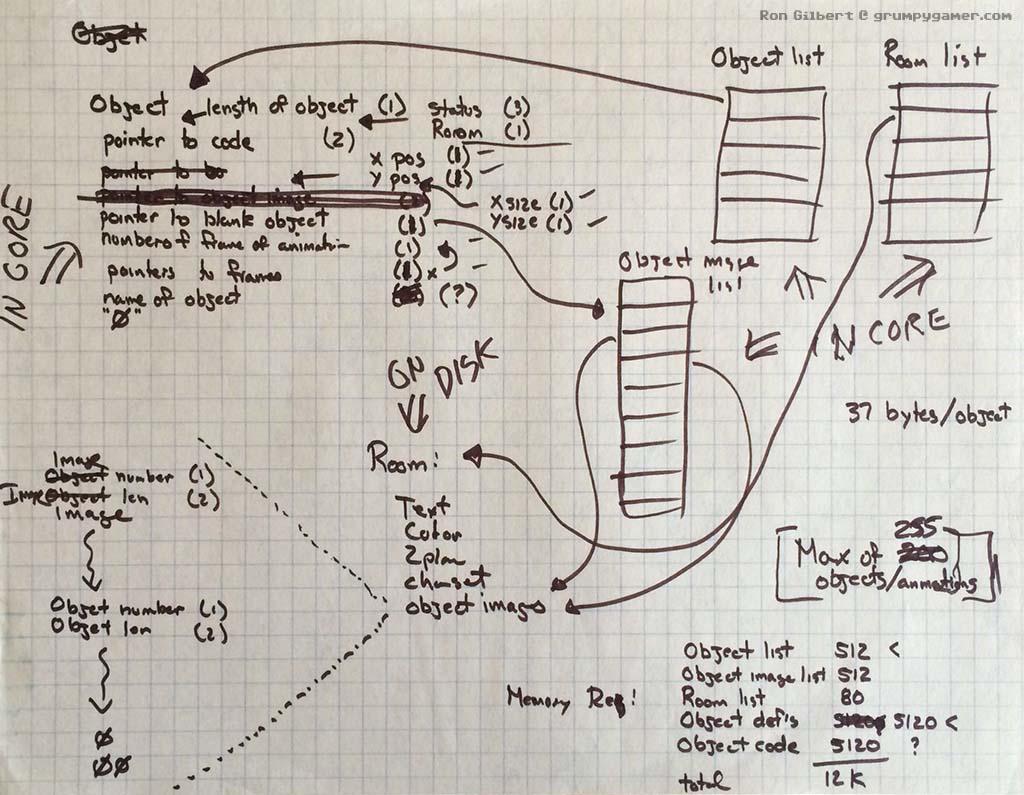 Ron Gilbert @ grumpygamer.com
Object list
Room list
Object
length of object (1)
Status (3)
Room (1)
pointer to code (2)
pointer to
X pos
Y pos
pointer to object image
X size (1)
Y size (1)
pointer to blank object
number of frame of animation (1)
pointers to frames
name of object (?)
"Ø"
IN CORE
Object image
list
IN CORE
ON
DISK
37 bytes/object
Room:
Text
Color
Zplan
charset
object image
Image
Object number (1)
Image Object len (2)
Image
Objet number (1)
Objet len (2)
Ø
ØØ
255
Max of 200
objects/animations
Memory Req:
Object list 512 <
Object image list 512
Room list 80
Object def's 5120 <
Object code 5120 ?
total 12K